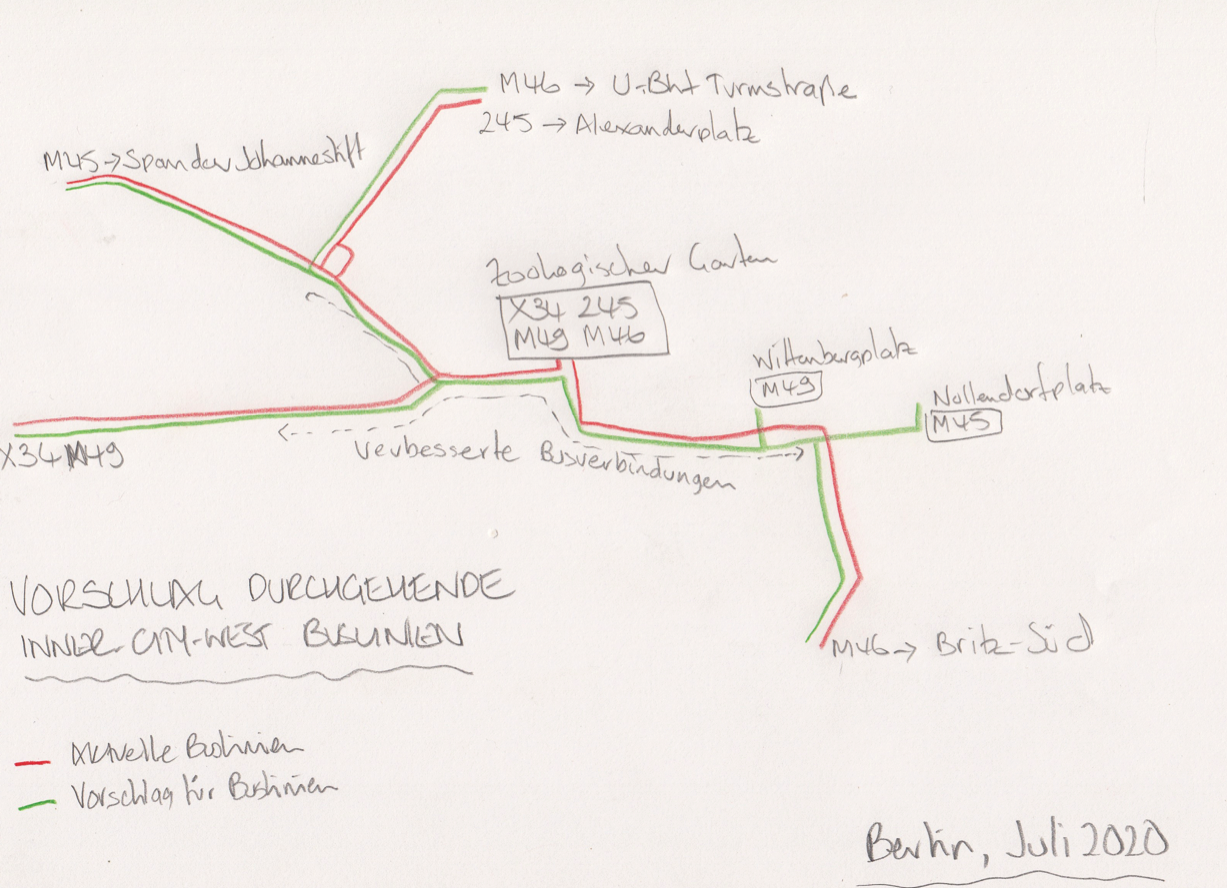 M46 → U-Bhf Turmstraße
245 → Alexanderplatz
M45 → Spandau Johannesstift
Zoologischer Garten
X34 245
M49 M46
Wittenbergplatz
M49
Nollendorfplatz
M45
X34 M49
Verbesserte Busverbindungen
VORSCHLAG DURCHGEHENDE
INNER-CITY-WEST BUSLINIEN
M46 → Britz-Süd
Aktuelle Buslinien
Vorschlag für Buslinien
Berlin, Juli 2020